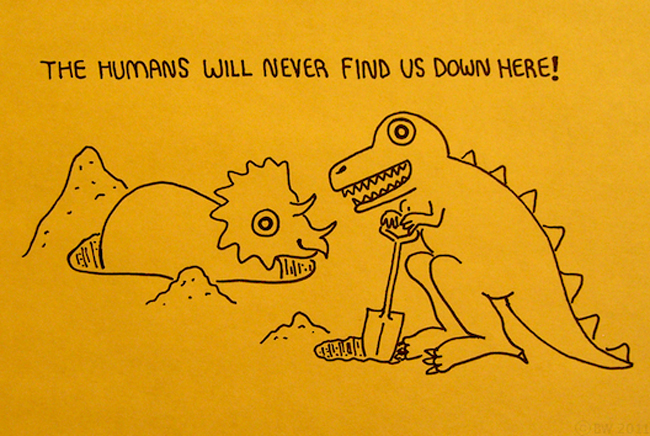 THE HUMANS WILL NEVER FIND US DOWN HERE!
© BW 2011